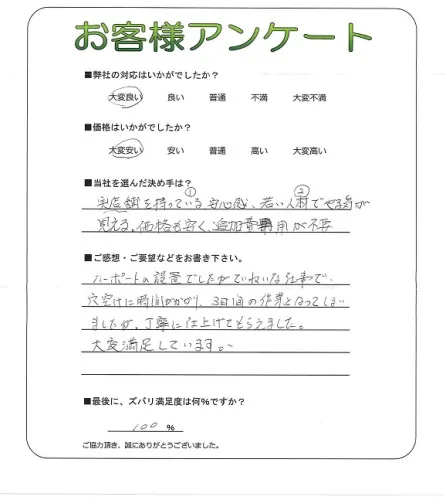 お客様アンケート
■弊社の対応はいかがでしたか？
大変良い 良い 普通 不満 大変不満
■価格はいかがでしたか？
大変安い 安い 普通 高い 大変高い
■当社を選んだ決め手は？
① ②
実店舗を持っている安心感、若い人材でやる気が
見える、価格も安く、追加費用が不要
■ご感想・ご要望などをお書き下さい。
カーポートの設置でしたがていねいな仕事で、
穴空けに時間がかかり、3日間の作業となってしまい
ましたが、丁寧に仕上げてもらえました。
大変満足しています。
■最後に、ズバリ満足度は何%ですか？
100 %
ご協力頂き、誠にありがとうございました。